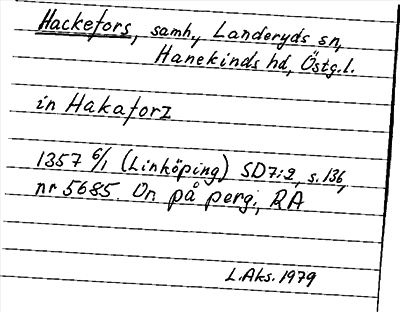 Hackefors, samh., Landeryds sn,
Hanekinds hd, Östg.l.
in Hakaforz
1357 6/1 (Linköping) SD7:2, s. 136,
nr 5685. Or. på perg., RA
L.Aks. 1979